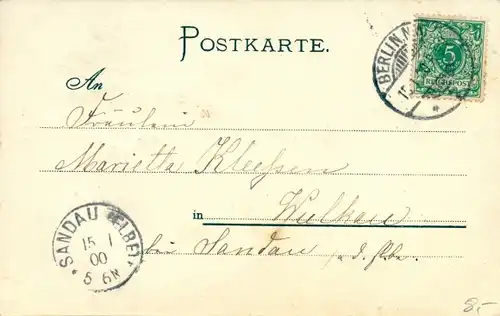 POSTKARTE.
BERLIN, N.
15.
5
REICHSPOST
An
Fräulein
Marietta Kleessen
in Wulkau
bei Sandau a. d. Elbe.
SANDAU (ELBE)
15 1
00
5-6N
8,-